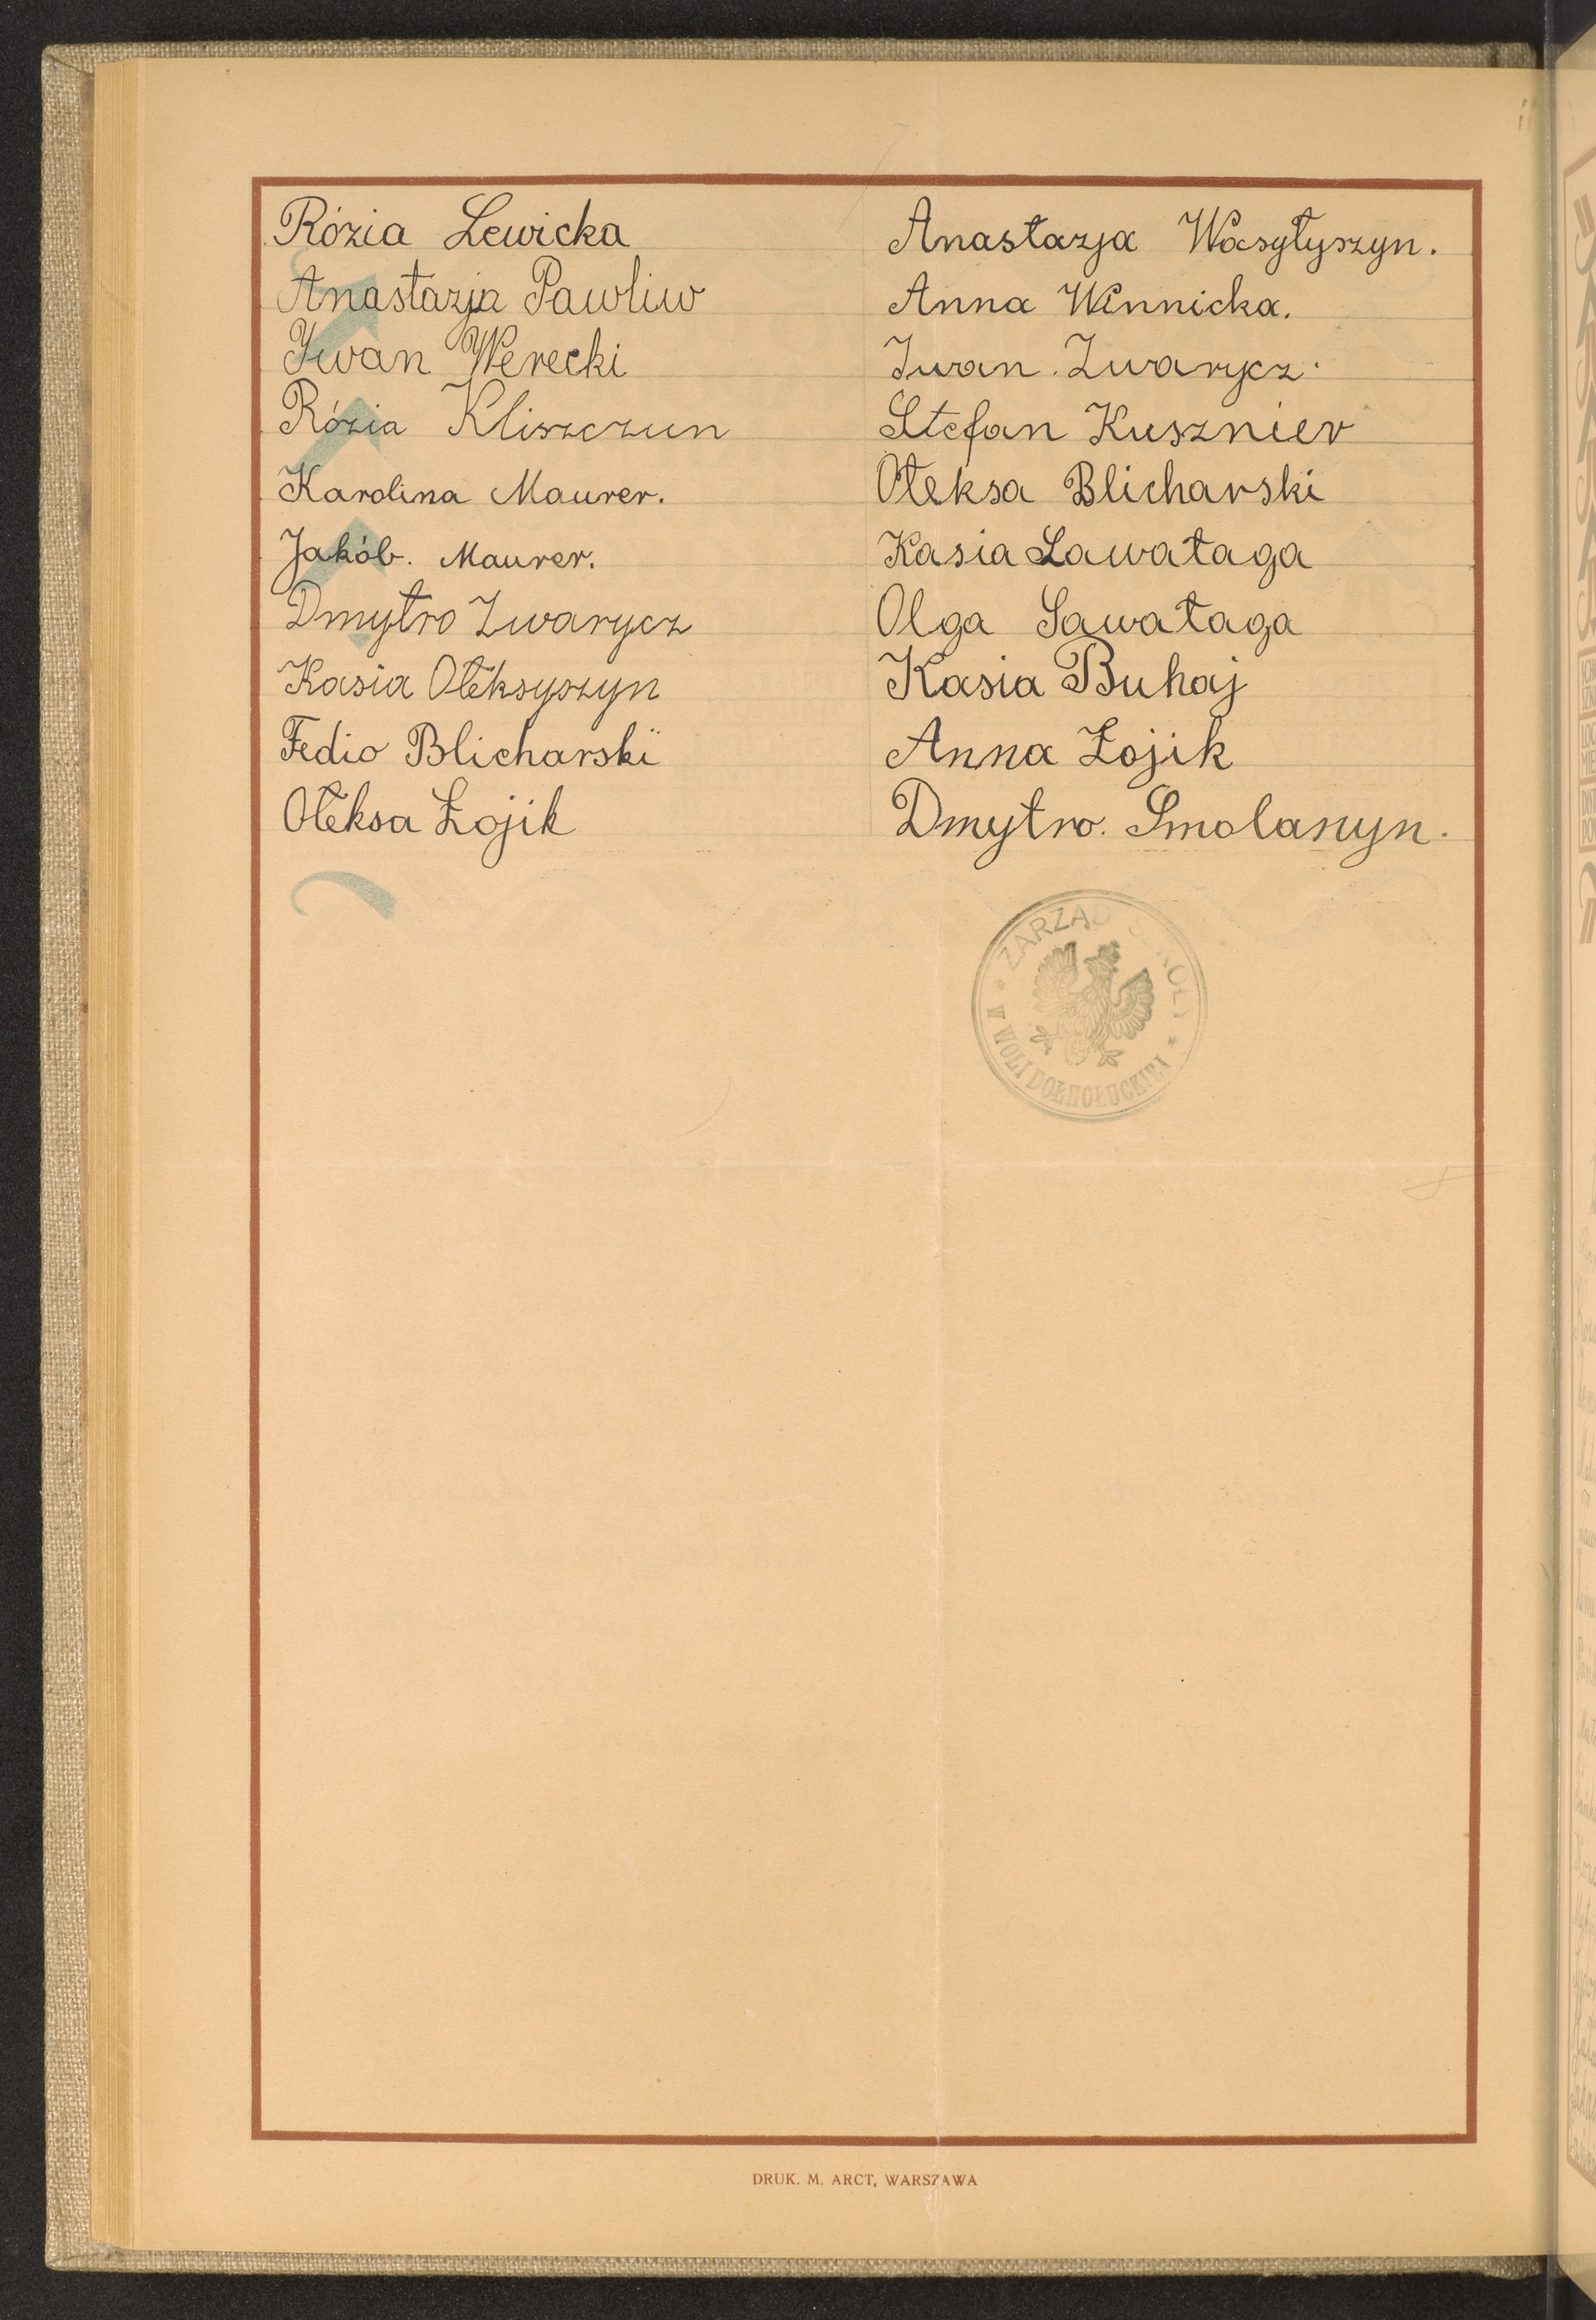 Rózia Lewicka
Anastazja Pawliw
Iwan Werecki
Rózia Kliszczun
Karolina Maurer.
Jakób. Maurer.
Dmytro Zwarycz
Kasia Ołeksyszyn
Fedio Blicharski
Ołeksa Łojik
Anastazja Wasyłyszyn.
Anna Winnicka.
Iwan. Zwarycz.
Stefan Kusznier
Ołeksa Blicharski
Kasia Sawałaga
Olga Sawałaga
Kasia Buhaj
Anna Łojik
Dmytro. Smolanyn.
ZARZĄD SZKOŁY
W WOLI DOŁHOŁUCKIEJ
DRUK. M. ARCT, WARSZAWA